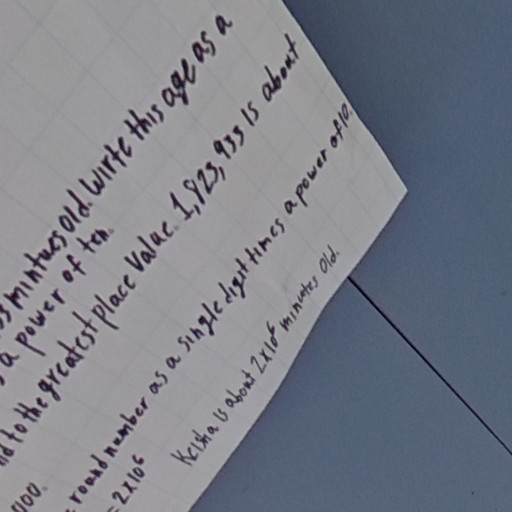 mintues old. Wirte this age as a
a power of ten.
to the greatest place value. 1,823,933 is about
000.
round number as a single digit times a power of 10.
= 2x10⁶
Keisha is about 2x10⁶ minutes old.